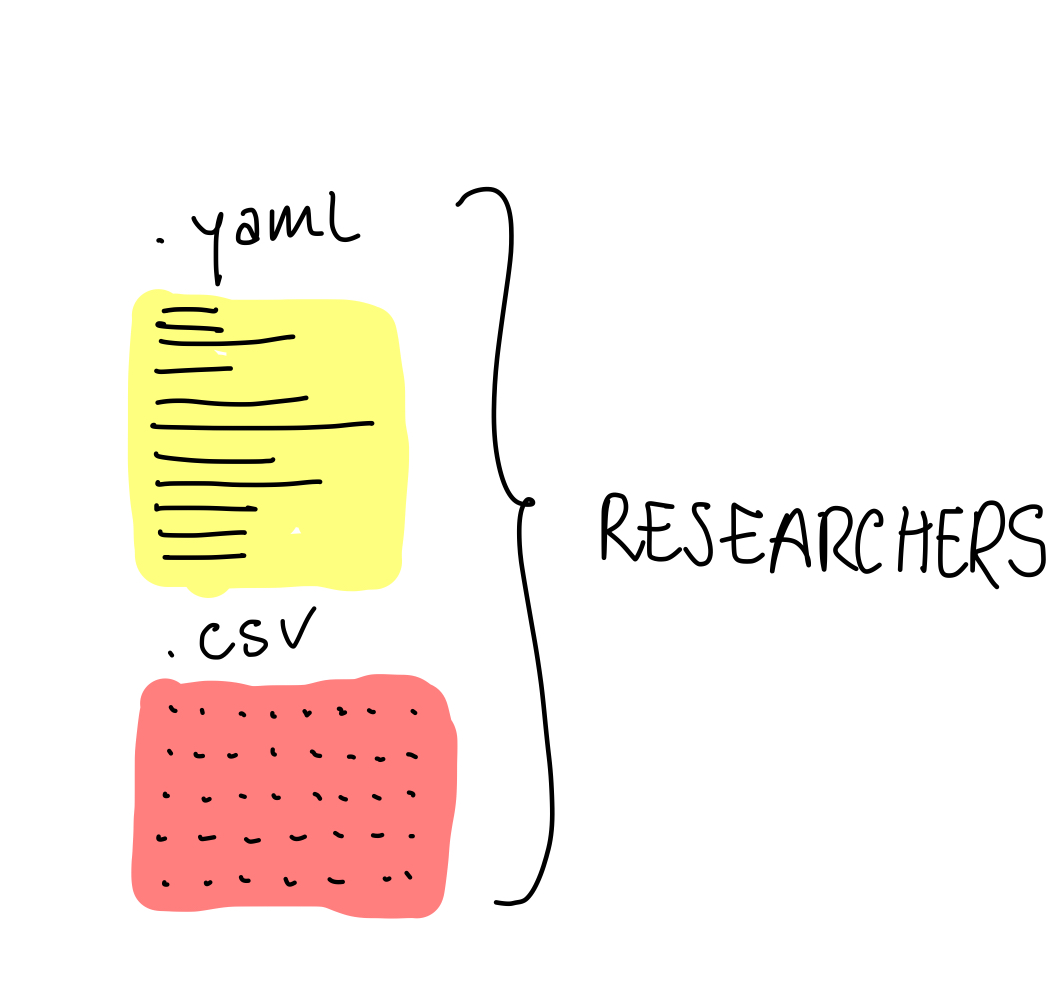 .yaml
.csv
RESEARCHERS